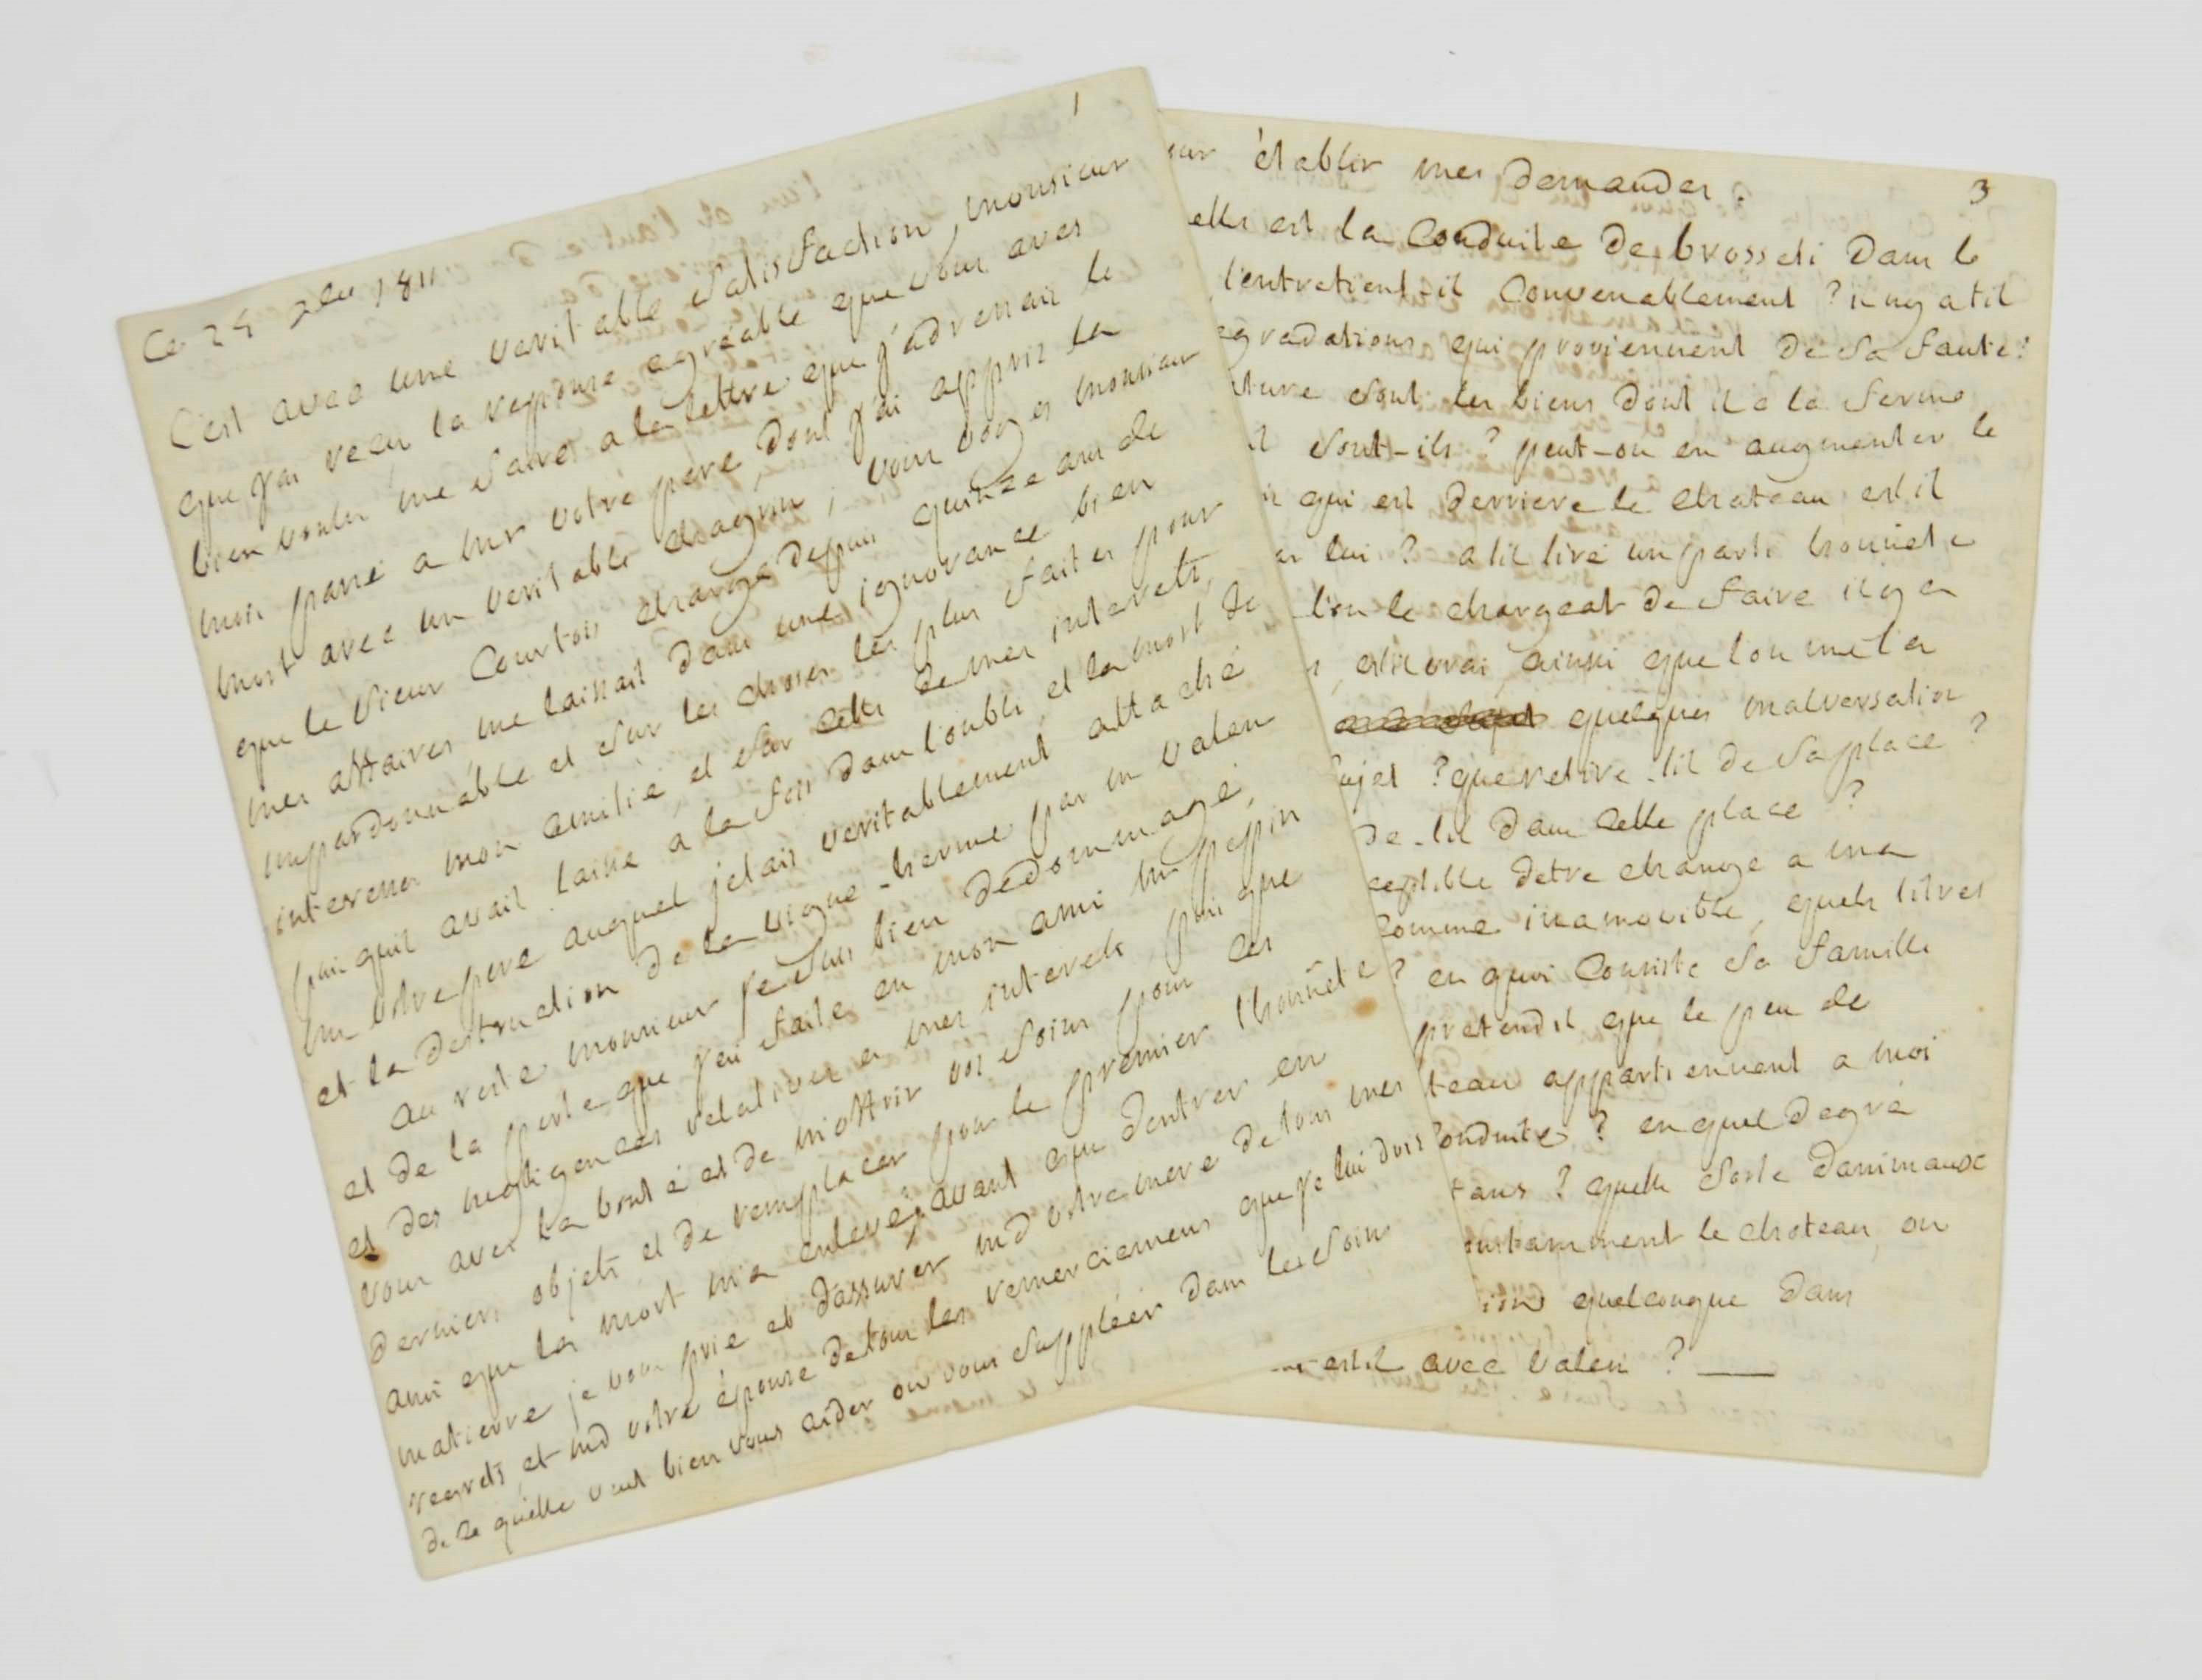 1
Ce 24 1811
C'est avec une veritable satisfaction, monsieur
que j'ai recu la reponse agréable que vous aves
bien voulu me faires a la lettre que j'adressais le
mois passé a mr votre pere, dont j'ai appris la
mort avec un veritable chagrin; vous voyes monsieur
que le sieur Courtois chargé depuis quinze ans de
mes affaires me laissait dans une ignorance bien
impardonnable et sur les choses les plus faites pour
interesser mon amitié et sur celles de mes interets,
puis quil avait laissé a la fois dans l'oubli et la mort de
mr votre pere auquel j'etais veritablement attaché
et la destruction de la vigne-herme par un valeu
au reste monsieur je suis bien dedommagé,
et de la perte que j'ai faite en mon ami mr pepin
et des negligences relatives a mes interets puis que
vous aves la bonté et de m'offrir vos soins pour ces
derniers objets et de remplacer pour le premier l'honnête
ami que la mort m'a enlevé; avant que dentrer en
matierre je vous prie et d'assurer md votre mere de tous mes
regrets, et md votre épouse de tous les remerciemens que je lui dois
de ce quelle veut bien vous aider ou vous suppléér dans les soins
3
établir mes demandes.
est la conduite de brosseti dans le
l'entretient-il convenablement? n'ny atil
qui proviennent de sa faute?
sont les biens dont il a la ferme
sont-ils? peut-on en augmenter le
qui est derriere le chateau est il
lui? a til tiré un parti honnete
l'on le chargeat de faire il y a
estil vrai, ainsi que lon me l'a
quelques malversation
? que retire-til de sa place?
-til dans cette place?
detre changé a ma
comme inamovible, quels titres
? en quoi consiste sa famille
pretendil que le peu de
appartiennent a moi
? en quel degré
? quelle sorte danimaux
le chateau, ou
quelconque dans
estil avec valeu?